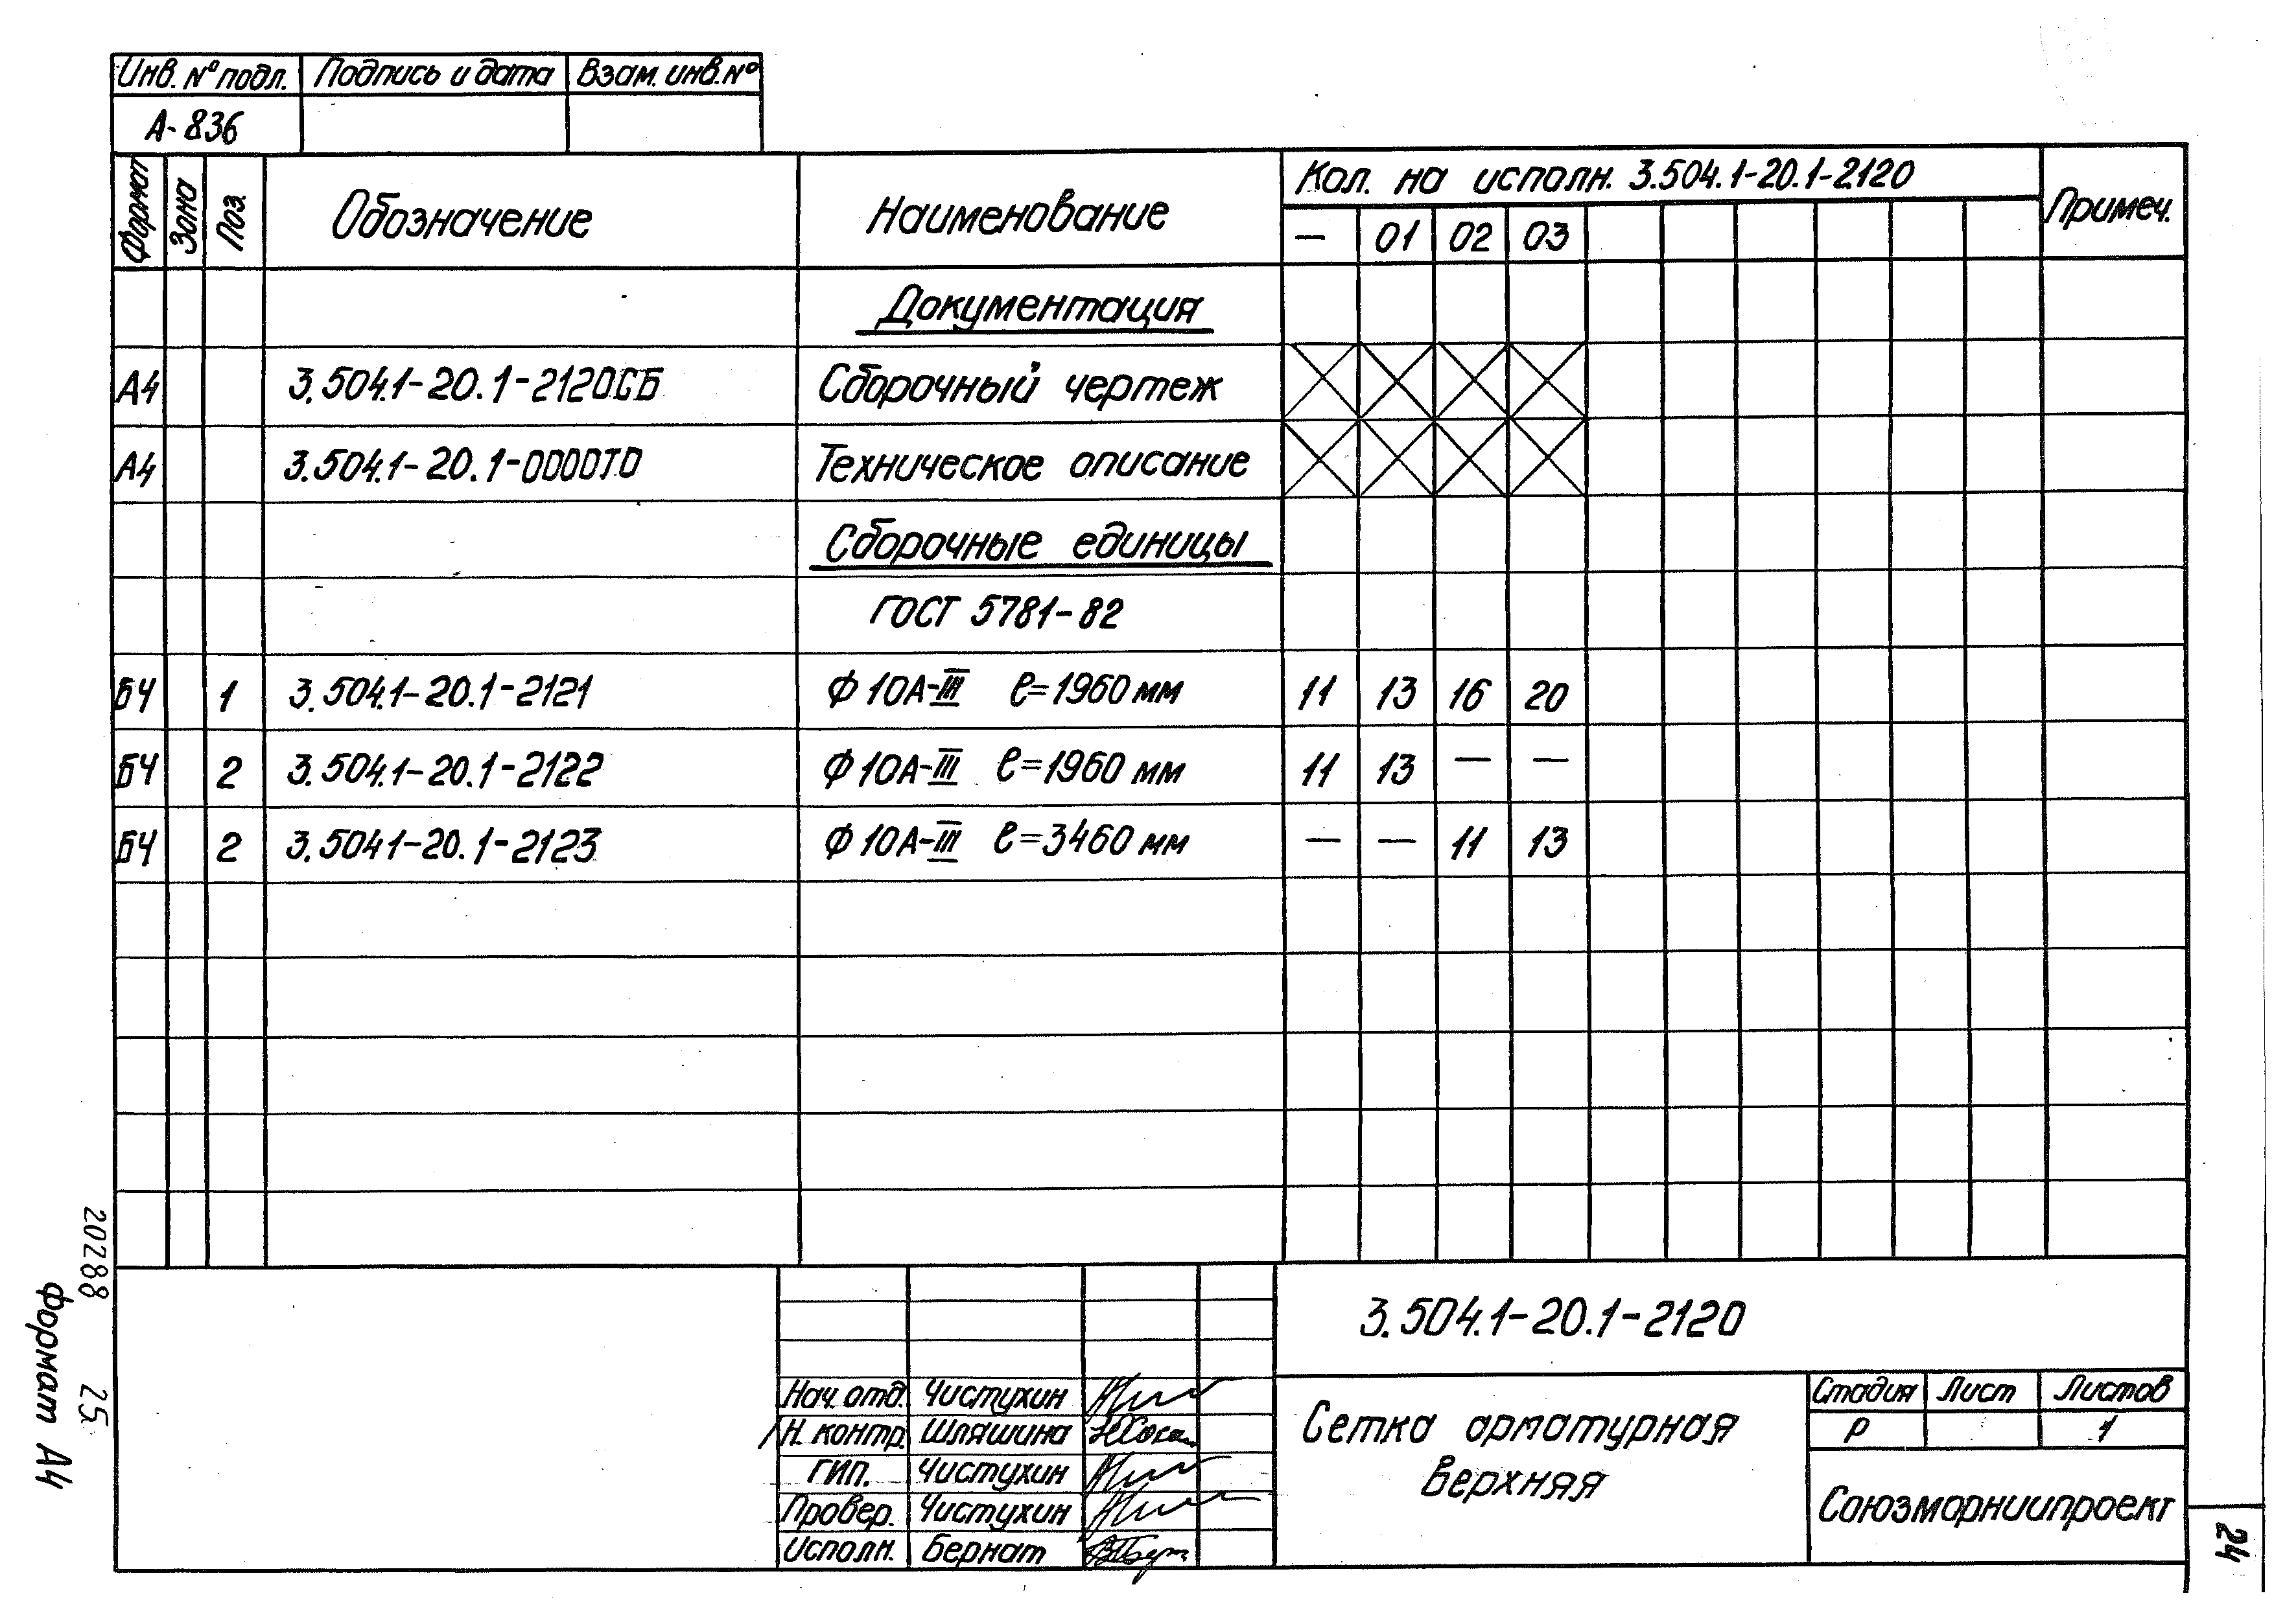 Инв. № подл. Подпись и дата Взам. инв. №
А-836
Формат Зона Поз. Обозначение Наименование Кол. на исполн. 3.504.1-20.1-2120 Примеч.
— 01 02 03
Документация
А4 3.504.1-20.1-2120СБ Сборочный чертеж
А4 3.504.1-20.1-0000ТО Техническое описание
Сборочные единицы
ГОСТ 5781-82
БЧ 1 3.504.1-20.1-2121 Ф 10А-III ℓ=1960 мм 11 13 16 20
БЧ 2 3.504.1-20.1-2122 Ф 10А-III ℓ=1960 мм 11 13 — —
БЧ 2 3.504.1-20.1-2123 Ф 10А-III ℓ=3460 мм — — 11 13
3.504.1-20.1-2120
Нач. отд. Чистухин
Н. контр. Шляшина
ГИП. Чистухин
Провер. Чистухин
Исполн. Бернат
Сетка арматурная
верхняя
Стадия Лист Листов
Р 1
Союзморниипроект
20288 25
Формат А4
24